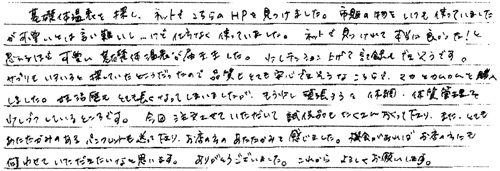 基礎体温表を探し、ネットでこちらのHPを見つけました。市販の物をいつも使っていました
が可愛いとは言い難いし…でも仕方なく使っていました。ネットで見つけれて本当に良かった!と
思えるほど可愛い基礎体温表が届きました。少しテンション上げて記録もできそうです。
サプリもいろいろと探していたところだったので品質もとても安心できそうなこちらで、マカとOMOMを購入
しました。妊活歴もとても長くなってしまいましたが、もう少し頑張ろうと休期・体質管理を
少しづつしているところです。今回注文させていただいて試供品もたくさん入ってたり、また、とても
あたたかみのあるパンフレットも送って下さり、お店の方のあたたかみを感じました。機会があればお店の方にも
伺わせていただきたいなと思います。ありがとうございました。これからよろしくお願いします。